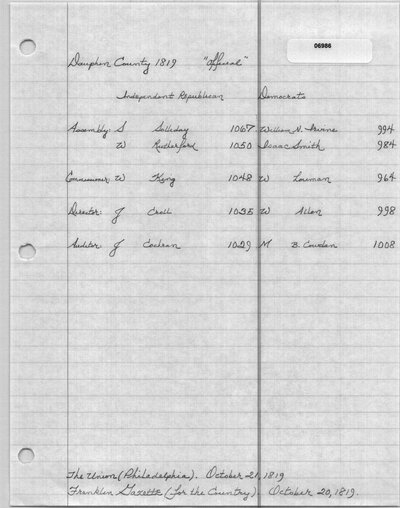 06986
Dauphin County 1819 "Official"
Independent Republican Democrats
Assembly: S Salleday 1067 William N. Irvine 994
W Rutherford 1050 Isaac Smith 984
Commissioner: W King 1048 W Lowman 964
Director: J Croll 1035 W Allen 998
Auditor: J Cochran 1029 M B. Cowden 1008
The Union (Philadelphia). October 21, 1819
Franklin Gazette (for the Country). October 20, 1819.